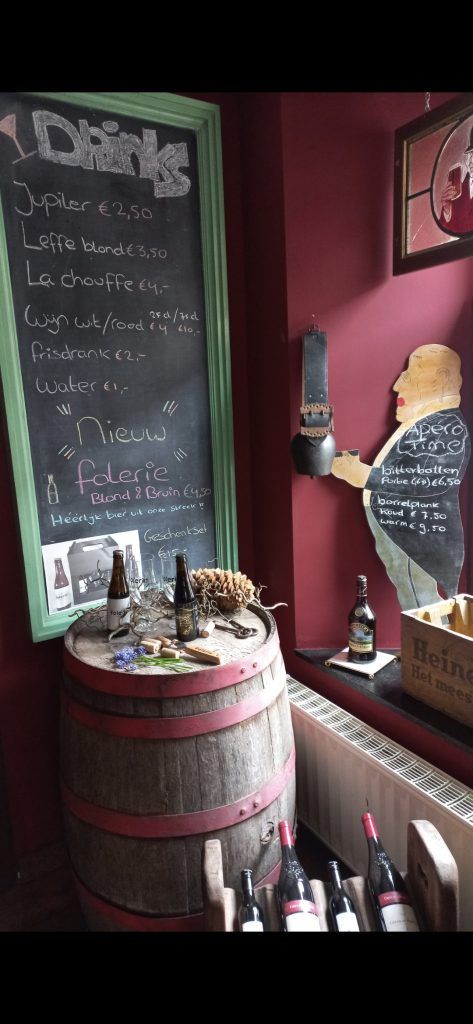 Drinks
Jupiler €2,50
Leffe blond €3,50
La chouffe €4,-
25cl/75cl
Wijn wit/rood €4 €10,-
frisdrank €2,-
Water €1,-
Nieuw
folerie
Blond & Bruin €4,50
Heerlijk bier uit onze streek!!
Geschenkset
€15,-
Apéro
time
bitterballen
€6,50
borrelplank
Koud €7,50
warm €9,50
Hein
Het mees